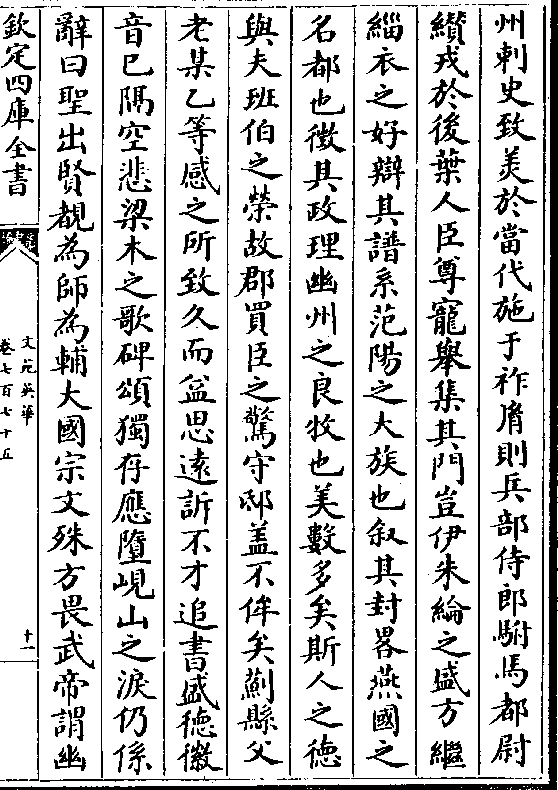 州刺史致美於當代施于祚㣧則兵部侍郎駙馬都尉
纉戎於後葉人臣尊寵舉集其門豈伊朱綸之盛方繼
緇衣之好辯其譜系范陽之大族也叙其封畧燕國之
名都也徵其政理幽州之良牧也美數多矣斯人之德
與夫班伯之榮故郡買臣之驚守邸盖不侔矣薊縣父
老某乙等感之所致久而益思逺訴不才追書盛徳徽
音已隔空悲梁木之歌碑頌獨存應墮峴山之淚仍係
辭曰聖出賢覩為師為輔大國宗文殊方畏武帝謂幽
欽定四庫全書
文苑英華
卷七百七十五
十一